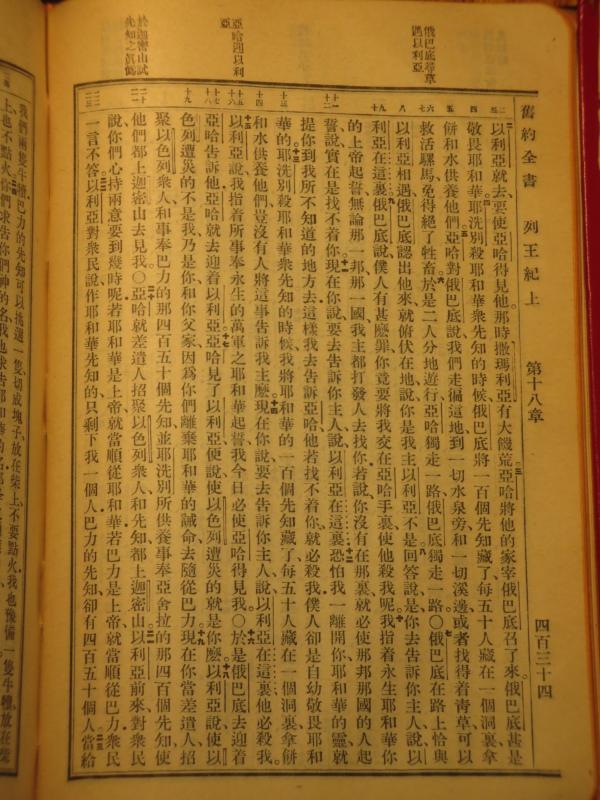 舊約全書 列王紀上 第十八章 四百三十四
俄巴底尋草
遇以利亞
亞哈迎以利
亞
於迦密山試
先知之眞僞
以利亞就去、要使亞哈得見他那時撒瑪利亞有大饑荒亞哈將他的家宰俄巴底召了來。俄巴底甚是
敬畏耶和華耶洗別殺耶和華衆先知的時候俄巴底將一百個先知藏了每五十人藏在一個洞裏拿
餅和水供養他們亞哈對俄巴底說我們走徧這地到一切水泉旁和一切溪邊或者找得着青草可以
救活騾馬免得絕了牲畜於是二人分地遊行亞哈獨走一路俄巴底獨走一路○俄巴底在路上恰與
以利亞相遇俄巴底認出他來就俯伏在地說你是我主以利亞不是回答說是你去告訴你主人說以
利亞在這裏俄巴底說僕人有甚麽罪你竟要將我交在亞哈手裏使他殺我呢我指着永生耶和華你
的上帝起誓無論那一邦那一國我主都打發人去找你若說你沒有在那裏就必使那邦那國的人起
誓說實在是找不着你現在你說要去告訴你主人說以利亞在這裏恐怕我一離開你耶和華的靈就
提你到我所不知道的地方去這樣我去告訴亞哈他若找不着你就必殺我僕人卻是自幼敬畏耶和
華的耶洗別殺耶和華衆先知的時候我將耶和華的一百個先知藏了每五十人藏在一個洞裏拿餅
和水供養他們豈沒有人將這事告訴我主麽現在你說要去告訴你主人說以利亞在這裏他必殺我
以利亞說我指着所事奉永生的萬軍之耶和華起誓我今日必使亞哈得見我○於是俄巴底去迎着
亞哈告訴他亞哈就去迎着以利亞亞哈見了以利亞便說使以色列遭災的就是你麽以利亞說使以
色列遭災的不是我乃是你和你父家因爲你們離棄耶和華的誡命去隨從巴力現在你當差遣人招
聚以色列衆人和事奉巴力的那四百五十個先知並耶洗別所供養事奉亞舍拉的那四百個先知使
他們都上迦密山去見我○亞哈就差遣人招聚以色列衆人和先知都上迦密山以利亞前來對衆民
說你們心持兩意要到幾時呢若耶和華是上帝就當順從耶和華若巴力是上帝就當順從巴力衆民
一言不答以利亞對衆民說作耶和華先知的只剩下我一個人巴力的先知卻有四百五十個人當給
我們兩隻牛犢巴力的先知可以挑選一隻切成塊子放在柴上、不要點火、我也豫備一隻牛犢放在柴
上也不點火你們求告你們神的名我也求告耶和華的名